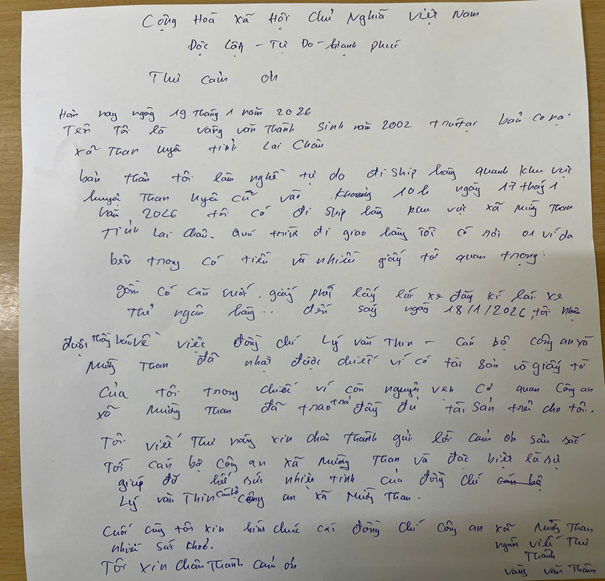 Cộng Hoà Xã Hội Chủ Nghĩa Việt Nam
Độc Lập - Tự Do - Hạnh Phúc
Thư cảm ơn
Hôm nay ngày 19 tháng 1 năm 2026
Tên Tôi là vàng văn Thành Sinh năm 2002 trú tại bản cơ nọ
xã Than Uyên tỉnh Lai Châu
bản thân tôi làm nghề tự do đi ship hàng quanh khu vực
huyện Than Uyên cũ vào khoảng 10h ngày 17 tháng 1
năm 2026 tôi có đi ship hàng khu vực xã Mường Than
Tỉnh Lai Châu. Quá trình đi giao hàng tôi có rơi 01 ví da
bên trong có tiền và nhiều giấy tờ quan trọng.
gồm có căn cước, giấy phép lái xe đăng kí lái xe
Thẻ ngân hàng.. đến sáng ngày 18/1/2026 tôi nhận
được thông báo về việc đồng chí Lý văn Thìn - Cán bộ công an xã
Mường Than đã nhặt được chiếc ví có tài sản và giấy tờ
Của tôi trong chiếc ví còn nguyên vẹn Cơ quan Công an
xã Mường Than đã trao trả đầy đủ tài sản trên cho tôi..
Tôi viết Thư này xin chân thành gửi lời cảm ơn sâu sắc
Tới cán bộ công an xã Mường Than và đặc biệt là sự
giúp đỡ hết sức nhiệt tình của đồng chí cán bộ
Lý văn Thìn cán bộ công an xã Mường Than.
Cuối cùng tôi xin kính chúc các đồng chí công an xã Mường Than
nhiều sức khoẻ.
người viết Thư
Thành
Tôi xin chân Thành cảm ơn
vàng văn Thành